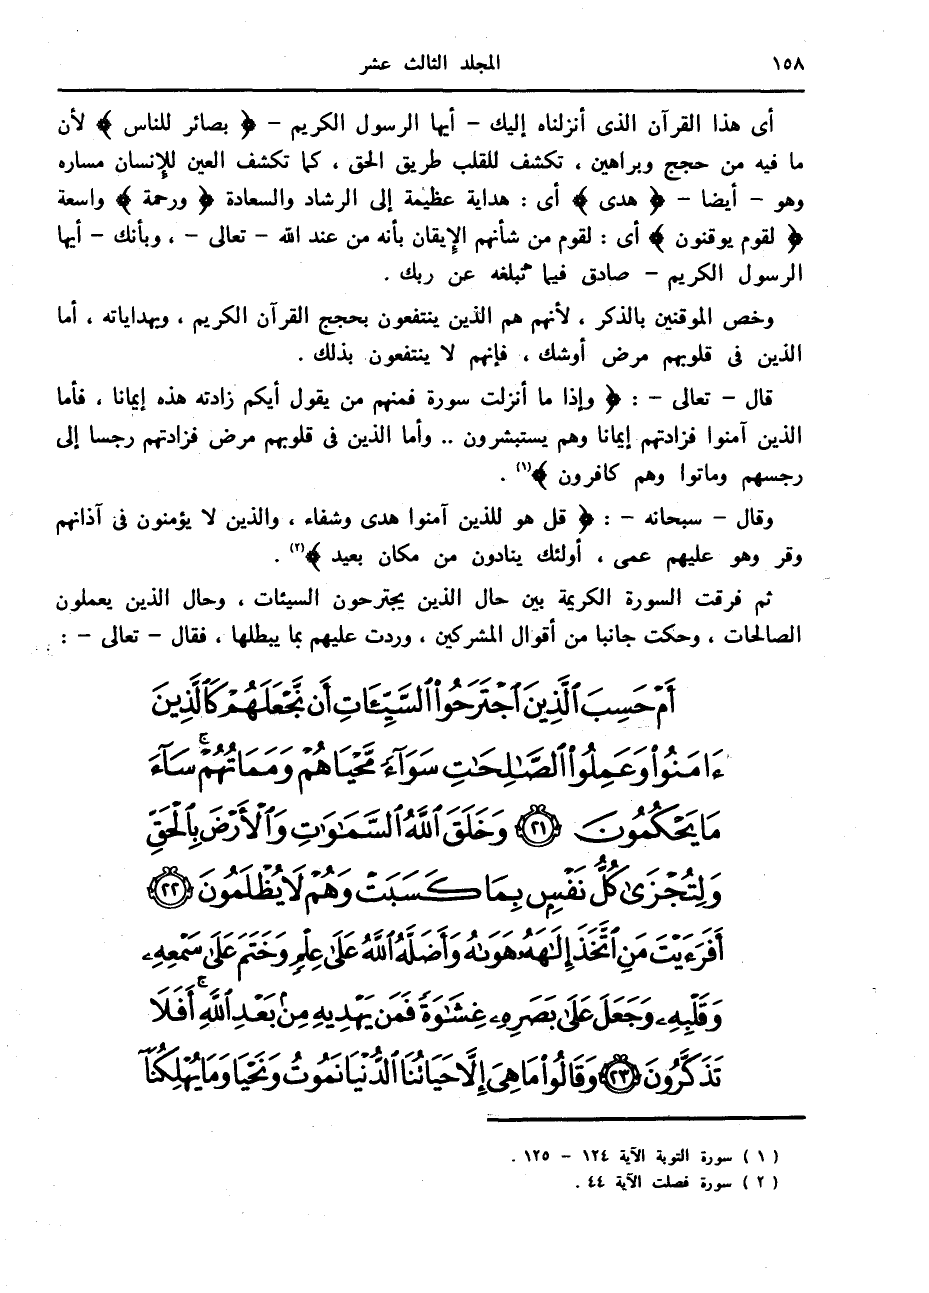 ١٥٨ المجلد الثالث عشر
أى هذا القرآن الذى أنزلناه إليك – أيها الرسول الكريم – ﴿ بصائر للناس ﴾ لأن
ما فيه من حجج وبراهين ، تكشف للقلب طريق الحق ، كما تكشف العين للإنسان مساره
وهو – أيضا – ﴿ هدى ﴾ أى : هداية عظيمة إلى الرشاد والسعادة ﴿ ورحمة ﴾ واسعة
﴿ لقوم يوقنون ﴾ أى : لقوم من شأنهم الإيقان بأنه من عند الله – تعالى – ، وبأنك – أيها
الرسول الكريم – صادق فيما تبلغه عن ربك .
وخص الموقنين بالذكر ، لأنهم هم الذين ينتفعون بحجج القرآن الكريم ، وبهداياته ، أما
الذين فى قلوبهم مرض أوشك ، فإنهم لا ينتفعون بذلك .
قال – تعالى – : ﴿ وإذا ما أنزلت سورة فمنهم من يقول أيكم زادته هذه إيمانا ، فأما
الذين آمنوا فزادتهم إيمانا وهم يستبشرون .. وأما الذين فى قلوبهم مرض فزادتهم رجسا إلى
رجسهم وماتوا وهم كافرون ﴾(١) .
وقال – سبحانه – : ﴿ قل هو للذين آمنوا هدى وشفاء ، والذين لا يؤمنون فى آذانهم
وقر وهو عليهم عمى ، أولئك ينادون من مكان بعيد ﴾(٢) .
ثم فرقت السورة الكريمة بين حال الذين يجترحون السيئات ، وحال الذين يعملون
الصالحات ، وحكت جانبا من أقوال المشركين ، وردت عليهم بما يبطلها ، فقال – تعالى – :
أَمْ حَسِبَ ٱلَّذِينَ ٱجْتَرَحُوا۟ ٱلسَّيِّـَٔاتِ أَن نَّجْعَلَهُمْ كَٱلَّذِينَ
ءَامَنُوا۟ وَعَمِلُوا۟ ٱلصَّـٰلِحَـٰتِ سَوَآءً مَّحْيَاهُمْ وَمَمَاتُهُمْ ۚ سَآءَ
مَا يَحْكُمُونَ ۝٢١ وَخَلَقَ ٱللَّهُ ٱلسَّمَـٰوَٰتِ وَٱلْأَرْضَ بِٱلْحَقِّ
وَلِتُجْزَىٰ كُلُّ نَفْسٍۭ بِمَا كَسَبَتْ وَهُمْ لَا يُظْلَمُونَ ۝٢٢
أَفَرَءَيْتَ مَنِ ٱتَّخَذَ إِلَـٰهَهُۥ هَوَىٰهُ وَأَضَلَّهُ ٱللَّهُ عَلَىٰ عِلْمٍ وَخَتَمَ عَلَىٰ سَمْعِهِۦ
وَقَلْبِهِۦ وَجَعَلَ عَلَىٰ بَصَرِهِۦ غِشَـٰوَةً فَمَن يَهْدِيهِ مِنۢ بَعْدِ ٱللَّهِ ۚ أَفَلَا
تَذَكَّرُونَ ۝٢٣ وَقَالُوا۟ مَا هِىَ إِلَّا حَيَاتُنَا ٱلدُّنْيَا نَمُوتُ وَنَحْيَا وَمَا يُهْلِكُنَآ
( ١ ) سورة التوبة الآية ١٢٤ – ١٢٥ .
( ٢ ) سورة فصلت الآية ٤٤ .